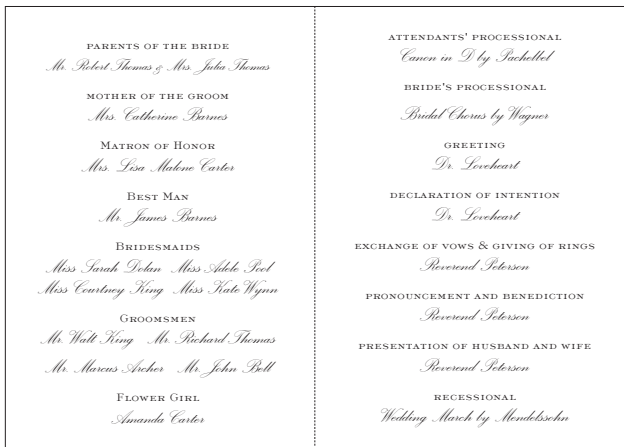 PARENTS OF THE BRIDE
Mr. Robert Thomas & Mrs. Julia Thomas
MOTHER OF THE GROOM
Mrs. Catherine Barnes
MATRON OF HONOR
Mrs. Lisa Malone Carter
BEST MAN
Mr. James Barnes
BRIDESMAIDS
Miss Sarah Dolan Miss Adele Pool
Miss Courtney King Miss Kate Wynn
GROOMSMEN
Mr. Walt King Mr. Richard Thomas
Mr. Marcus Archer Mr. John Bell
FLOWER GIRL
Amanda Carter
ATTENDANTS' PROCESSIONAL
Canon in D by Pachelbel
BRIDE'S PROCESSIONAL
Bridal Chorus by Wagner
GREETING
Dr. Loveheart
DECLARATION OF INTENTION
Dr. Loveheart
EXCHANGE OF VOWS & GIVING OF RINGS
Reverend Peterson
PRONOUNCEMENT AND BENEDICTION
Reverend Peterson
PRESENTATION OF HUSBAND AND WIFE
Reverend Peterson
RECESSIONAL
Wedding March by Mendelssohn